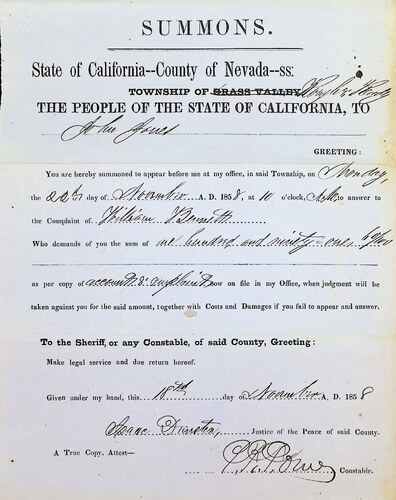 SUMMONS.
State of California--County of Nevada--ss:
TOWNSHIP OF GRASS VALLEY, Rough & Ready
THE PEOPLE OF THE STATE OF CALIFORNIA, TO
John Jones
GREETING:
You are hereby summoned to appear before me at my office, in said Township, on Monday,
the 22d day of November A. D. 1858, at 10 o'clock, A.M. to answer to
the Complaint of William Bennett
Who demands of you the sum of one hundred and ninety-one
as per copy of account & now on file in my Office, when judgment will be
taken against you for the said amount, together with Costs and Damages if you fail to appear and answer.
To the Sheriff, or any Constable, of said County, Greeting:
Make legal service and due return hereof.
Given under my hand, this 18th day of November A. D. 1858
Isaac Justice of the Peace of said County.
A True Copy, Attest—
Constable.